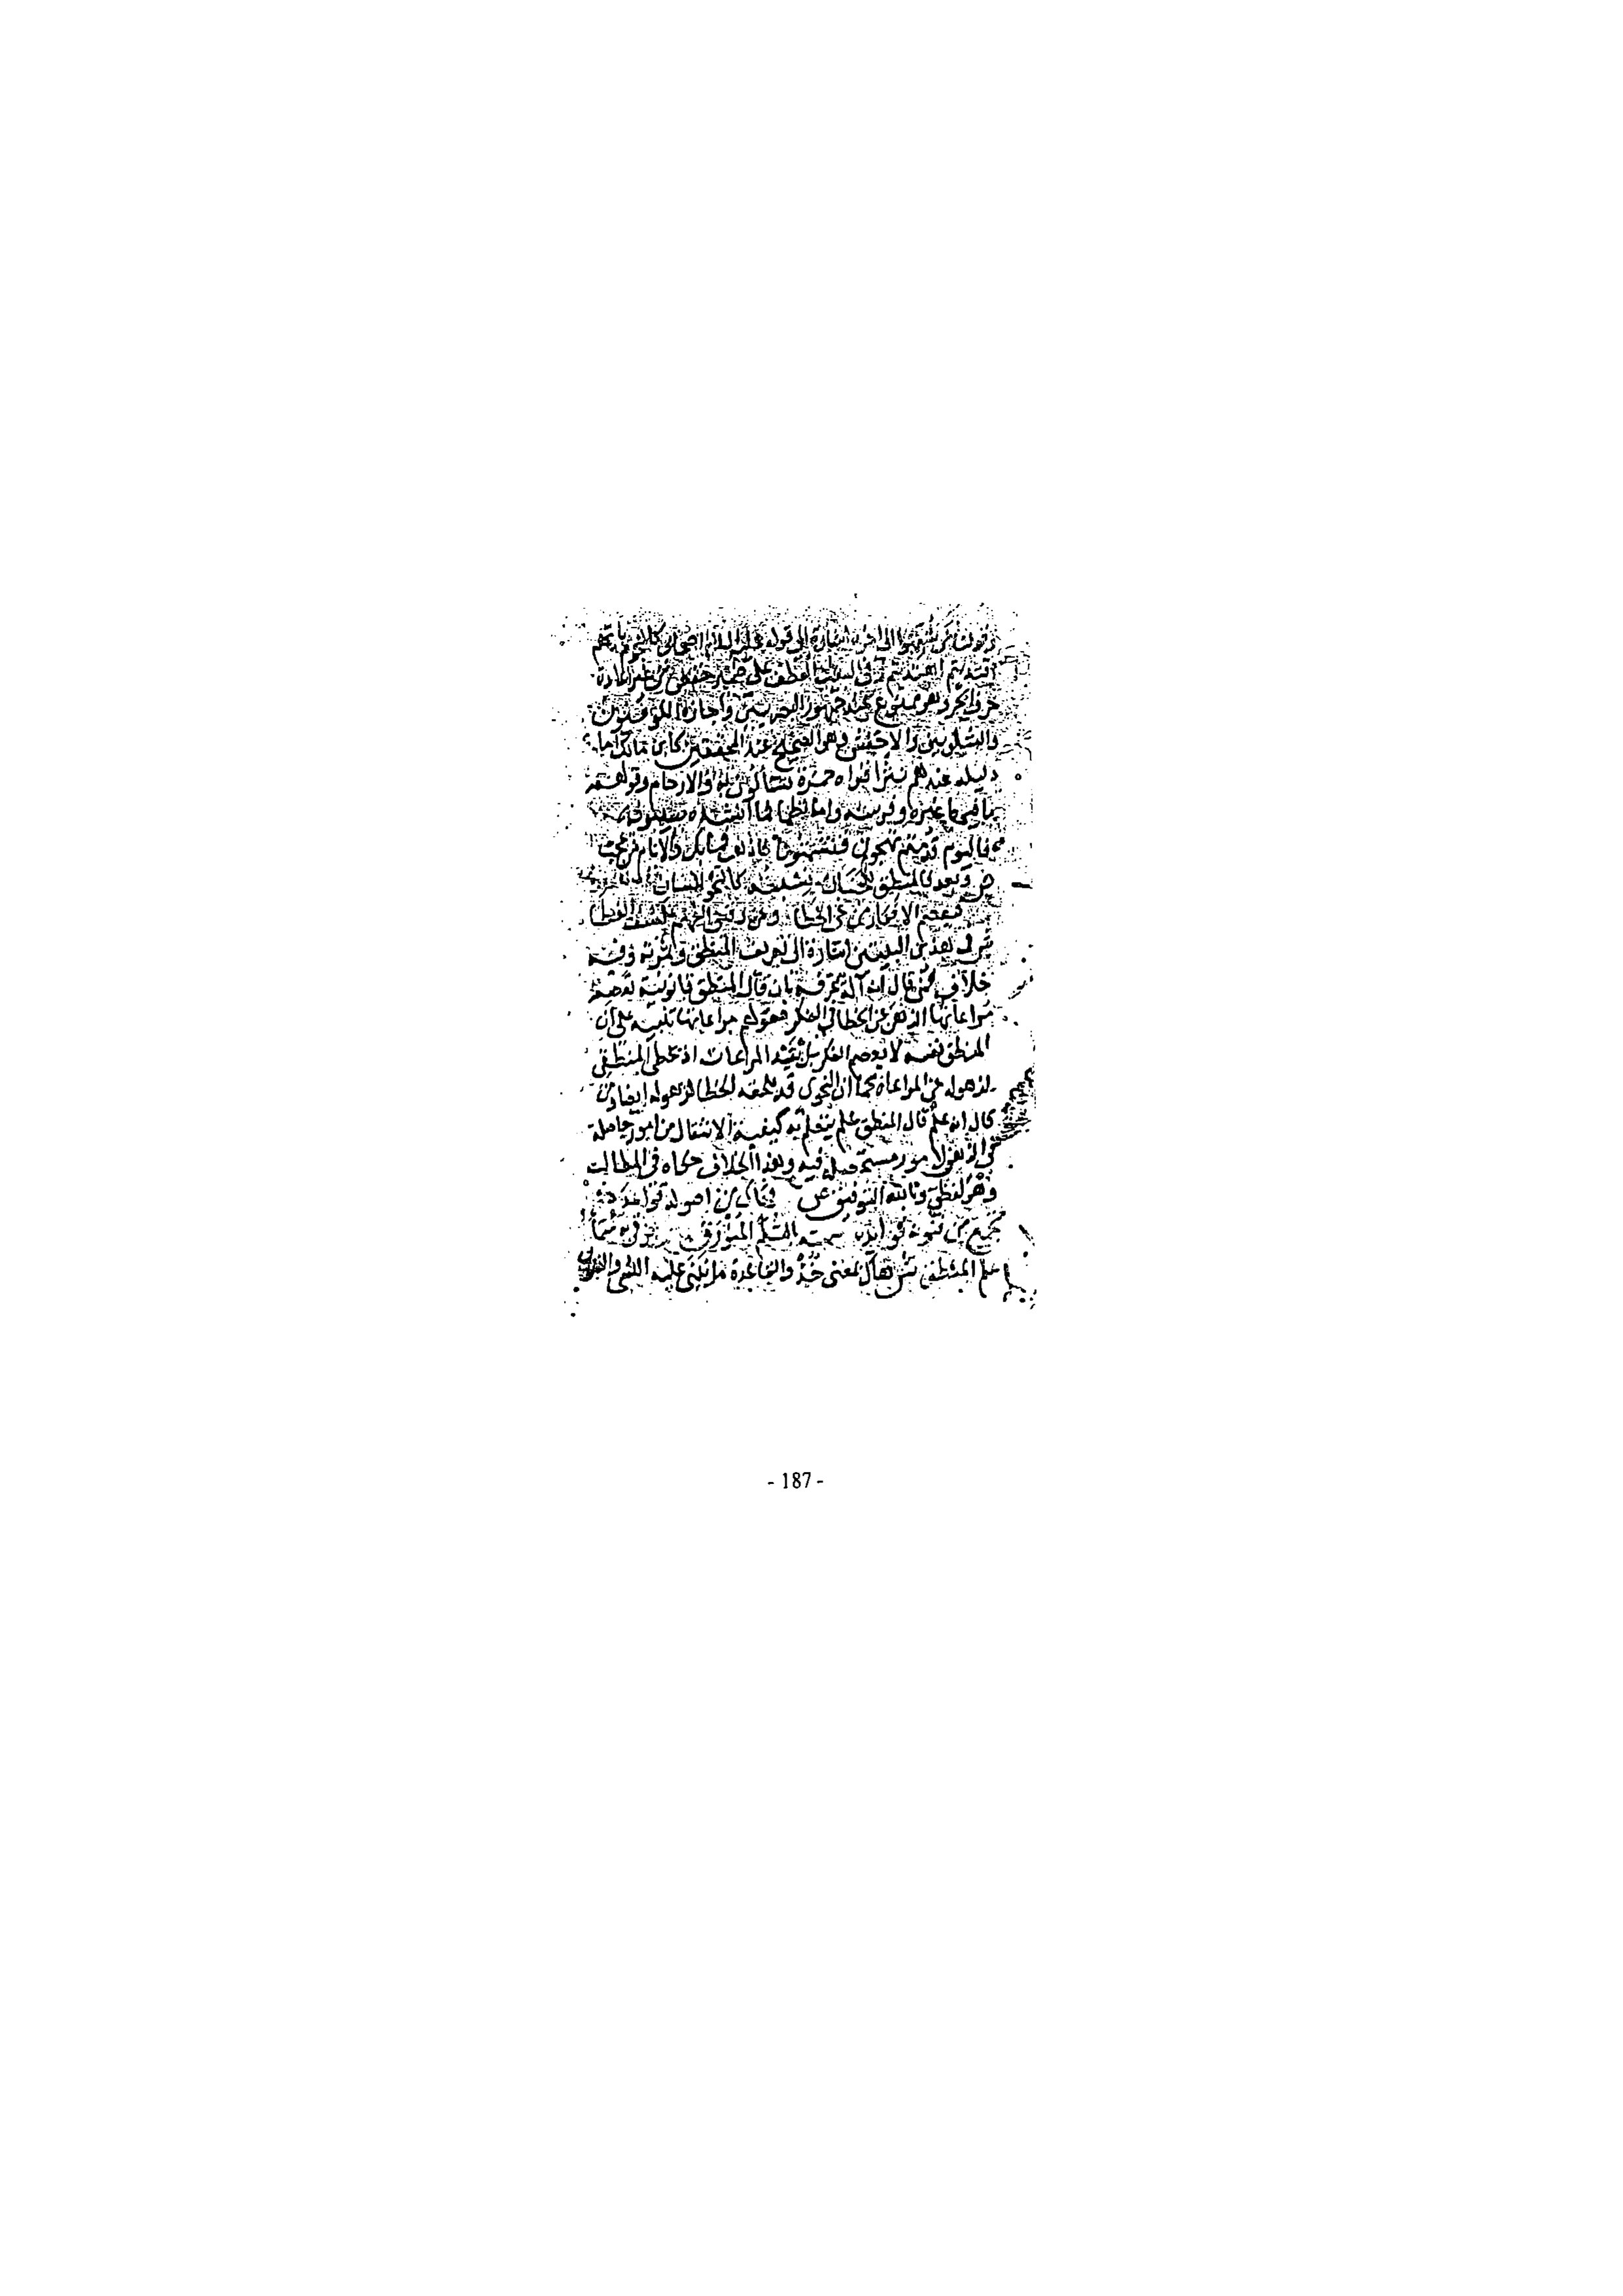 اشارة الى قوله عليه السلام اصحابي كالنجوم بأيهم
اقتديتم اهتديتم وفي البيت العطف على ضمير خفض من غير اعادة
حرف الجر وهو ممنوع عند جمهور البصريين وأجازه الكوفيون
والشلوبين والاخفش وهو الصحيح عند المحققين كابن مالك اما
دليله عندهم نثرا قراءة حمزة تساءلون به والارحام وقولهم
ما فيها غيره وفرسه واما نظما فما انشده سيبويه
فاليوم قد بتهجونا وتشتمنا فاذهب فما بك والايام من عجب
ص وبعد فالمنطق للجنان نسبته كالنحو للسان
فيعصم الافكار عن غي الخطا وعن دقيق الفهم يكشف الغطا
ش في هذين البيتين اشارة الى تعريف المنطق وثمرته وفيه
خلاف فمن قال انه آلة عرفه بان قال المنطق قانونية تعصم
مراعاتها الذهن عن الخطا في الفكر فقولهم مراعاتها تنبيه على ان
المنطق نفسه لا يعصم الفكر بل بقيد المراعات اذ قد يخطئ المنطقي
لذهوله عن المراعاة كما ان النحوي قد يلحقه الخطا لذهوله ايضا ومن
قال انه علم قال المنطق علم يتعلم به كيفية الانتقال من امور حاصلة
في الذهن لامور مستحصلة فيه وهذا الخلاف حكاه في المطالب
وهو لفظي وبالله التوفيق ص فهاك من اصوله قواعدا
تجمع من فنونه فوائدا سميته بالسلم المنورق يرقى به سما
علم المنطق ش هاك بمعنى خذ والقاعدة ما ينبني عليه الشي
- 187 -